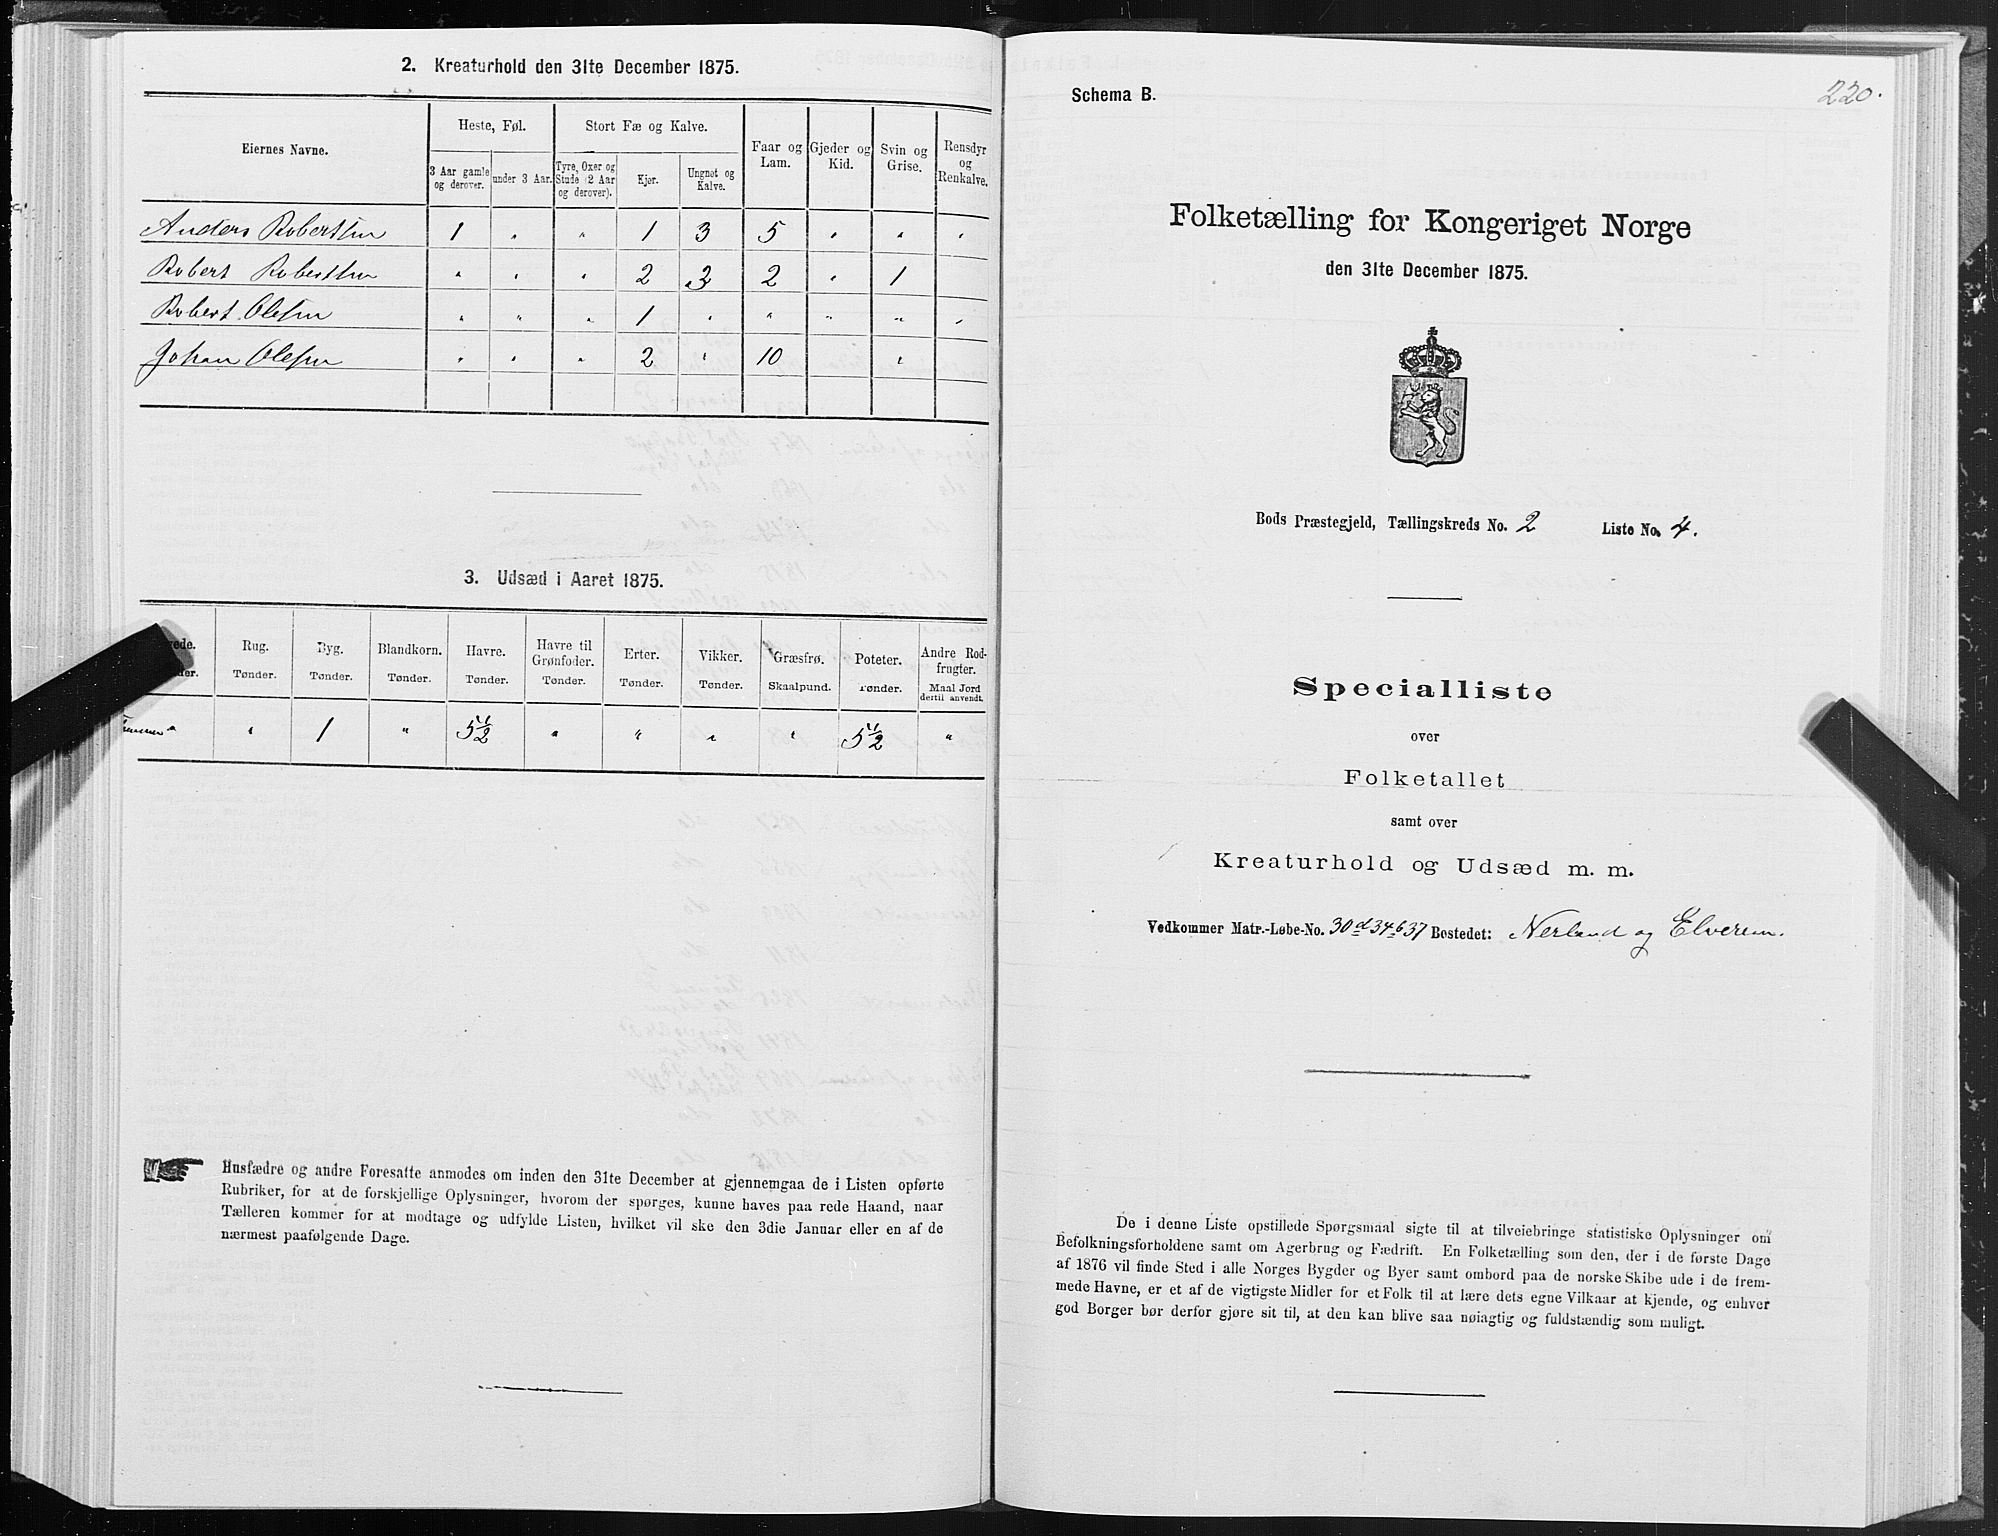 2. Kreaturhold den 31te December 1875.
Eiernes Navne. Heste, Føl. Stort Fæ og Kalve. Faar og Lam. Gjeder og Kid. Svin og Grise. Rensdyr og Renkalve.
3 Aar gamle og derover. under 3 Aar. Tyre, Oxer og Stude (2 Aar og derover). Kjør. Ungnøt og Kalve.
Anders Robertsen 1 " " 1 3 5 " " "
Robert Robertsen " " " 2 3 2 " 1
Robert Olesen " " " 1 " " " " "
Johan Olesen " " " 2 " 10 "
3. Udsæd i Aaret 1875.
Rug. Byg. Blandkorn. Havre. Havre til Grønfoder. Erter. Vikker. Græsfrø. Poteter. Andre Rodfrugter.
Tønder. Tønder. Tønder. Tønder. Tønder. Tønder. Tønder. Skaalpund. Tønder. Maal Jord dertil anvendt.
" " 1 " 5 1/2 " " " " 5 1/2 "
Husfædre og andre Foresatte anmodes om inden den 31te December at gjennemgaa de i Listen opførte
Rubriker, for at de forskjellige Oplysninger, hvorom der spørges, kunne haves paa rede Haand, naar
Tælleren kommer for at modtage og udfylde Listen, hvilket vil ske den 3die Januar eller en af de
nærmest paafølgende Dage.
Schema B.
220.
Folketælling for Kongeriget Norge
den 31te December 1875.
Bods Præstegjeld, Tællingskreds No. 2 Liste No. 4.
Specialliste
over
Folketallet
samt over
Kreaturhold og Udsæd m. m.
Vedkommer Matr.-Løbe-No. 30d 34b 37 Bostedet: Nerland og Elverem.
De i denne Liste opstillede Spørgsmaal sigte til at tilveiebringe statistiske Oplysninger om
Befolkningsforholdene samt om Agerbrug og Fædrift. En Folketælling som den, der i de første Dage
af 1876 vil finde Sted i alle Norges Bygder og Byer samt ombord paa de norske Skibe ude i de frem-
mede Havne, er et af de vigtigste Midler for et Folk til at lære dets egne Vilkaar at kjende, og enhver
god Borger bør derfor gjøre sit til, at den kan blive saa nøiagtig og fuldstændig som muligt.